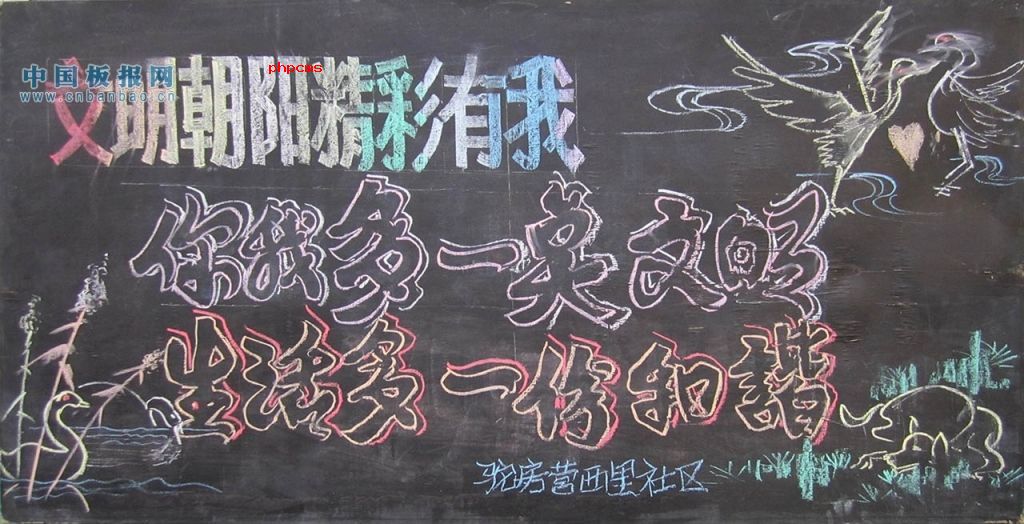 中国板报网
www.cnbanbao.cn
phpcms
文明朝阳精彩有我
你我多一奌文明
生活多一份和諧
驼房营西里社区